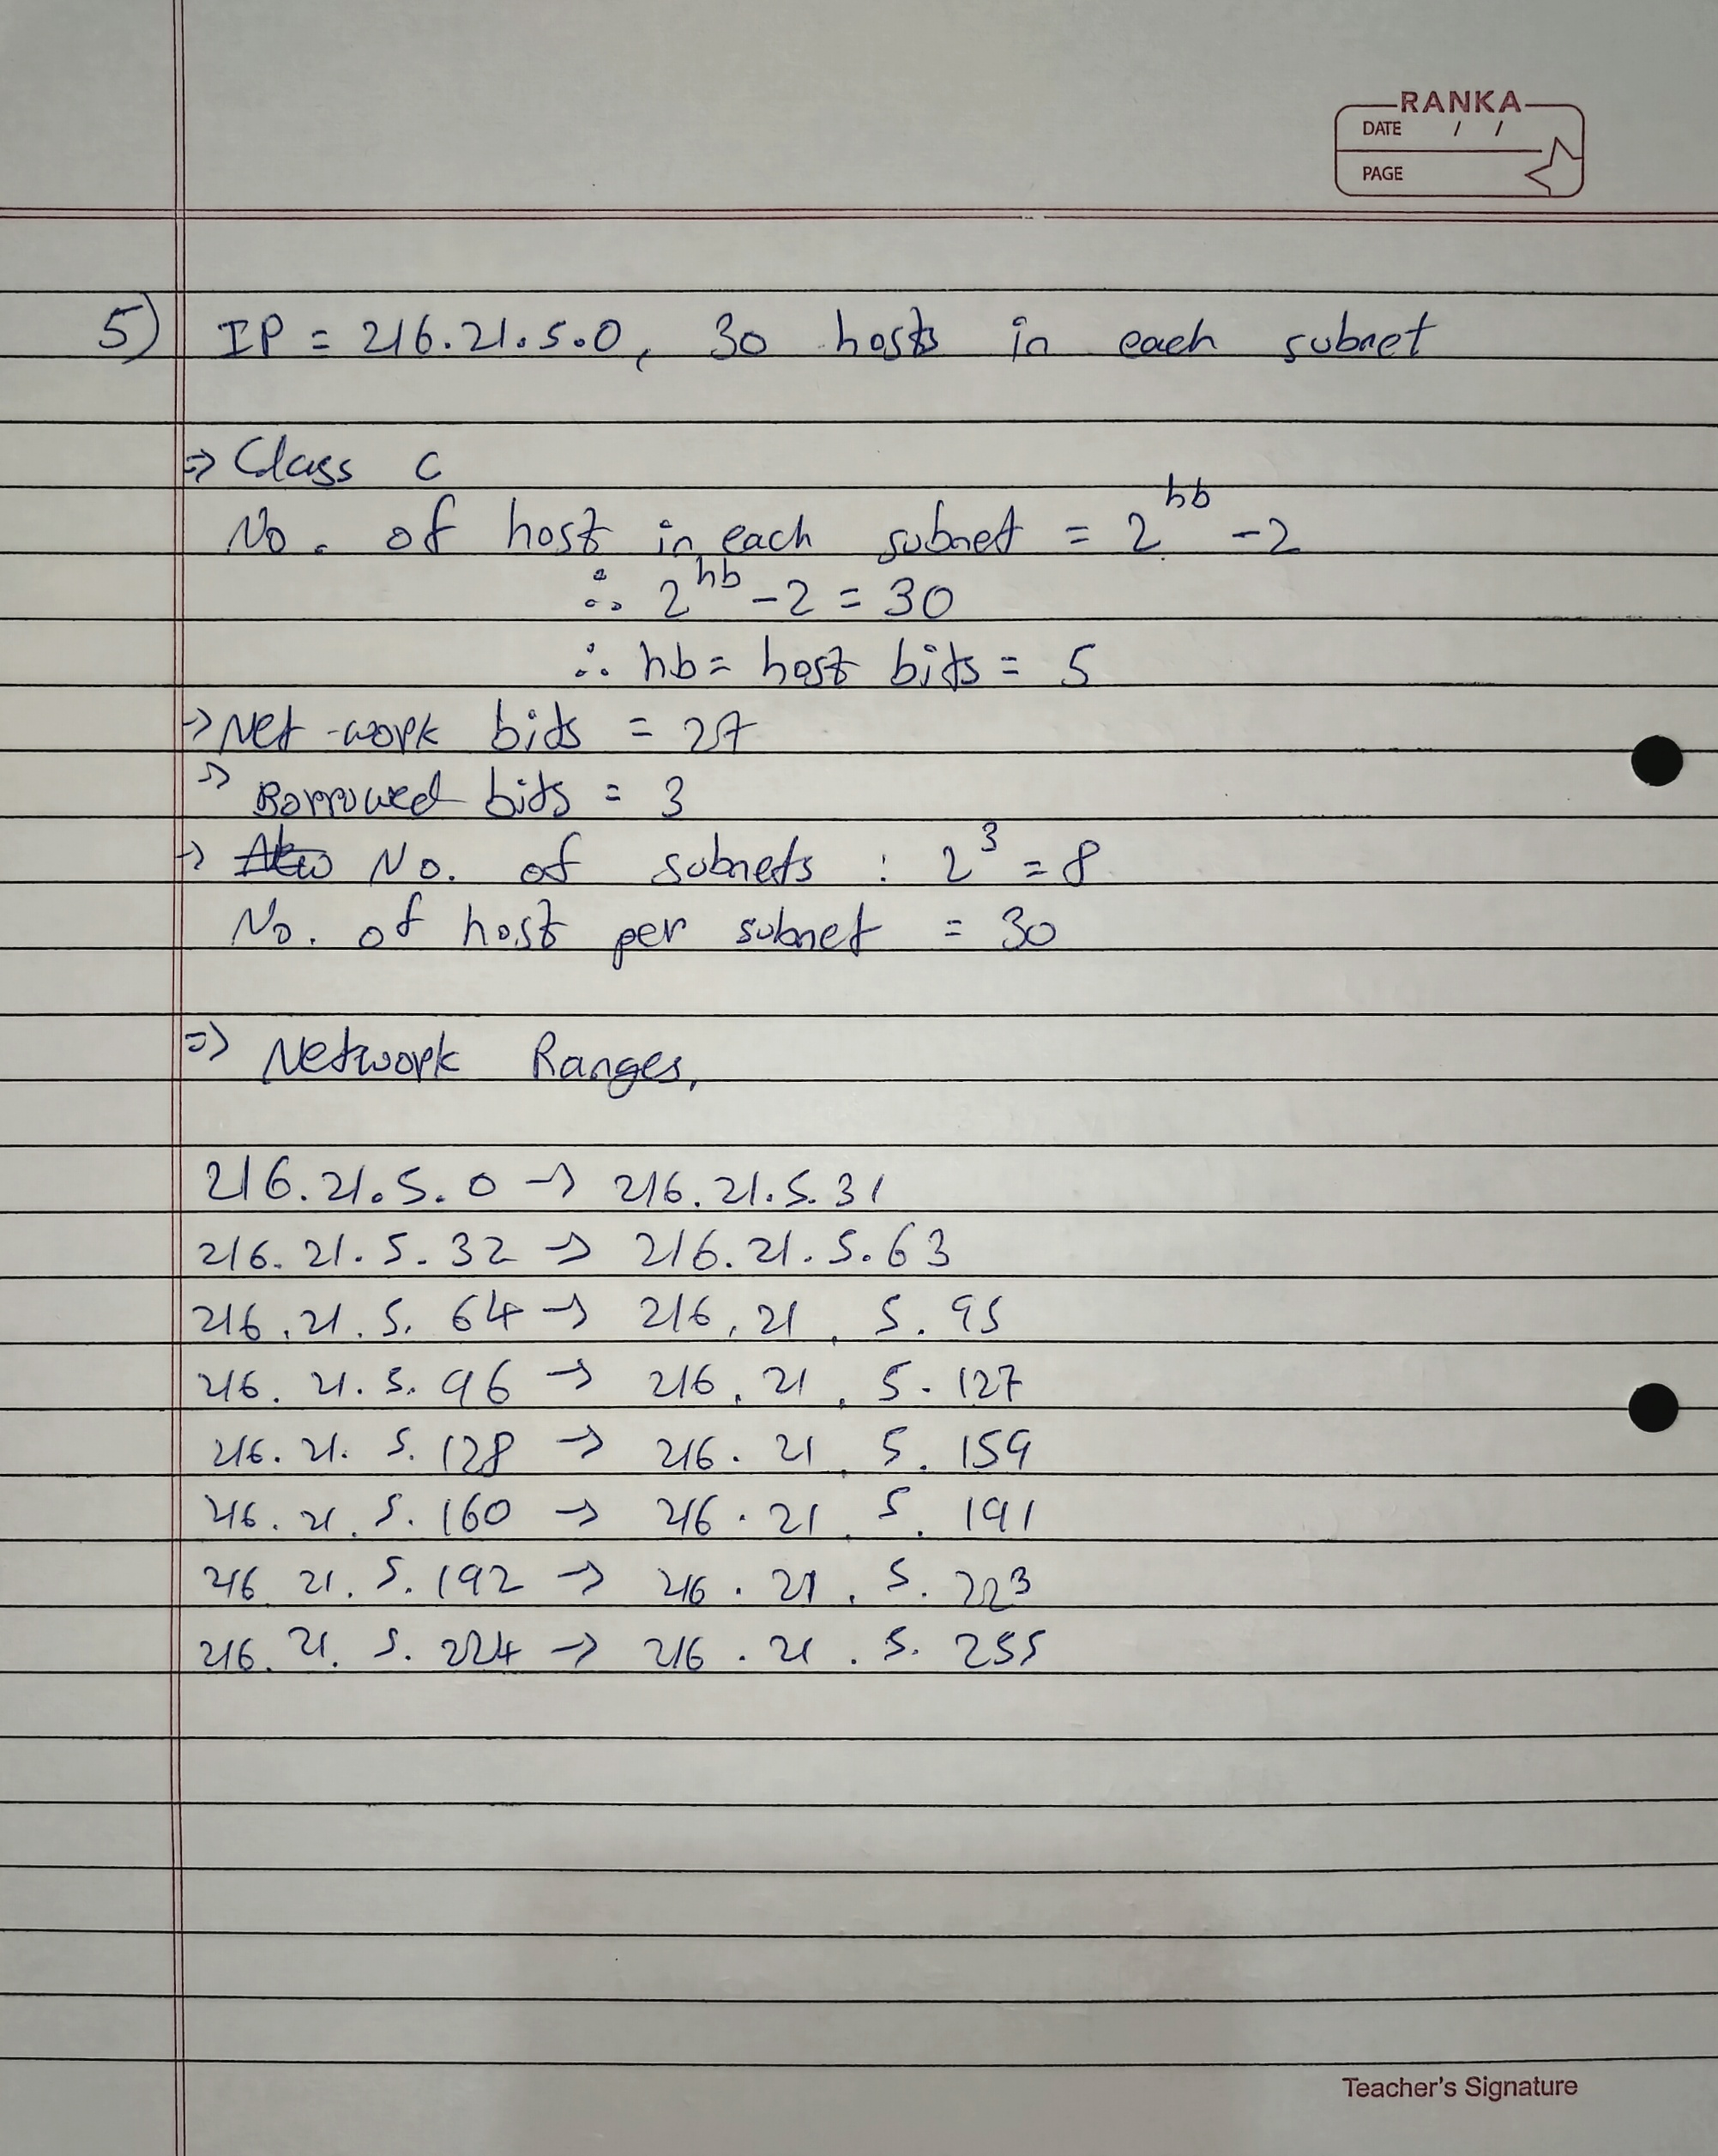 RANKA
DATE / /
PAGE
5) IP = 216.21.5.0, 30 hosts in each subnet
⇒ Class C
No. of host in each subnet = 2^hb - 2
∴ 2^hb - 2 = 30
∴ hb = host bits = 5
→ Net-work bits = 27
→ Borrowed bits = 3
→ No. of subnets : 2^3 = 8
No. of host per subnet = 30
⇒ Network Ranges,
216.21.5.0 → 216.21.5.31
216.21.5.32 → 216.21.5.63
216.21.5.64 → 216.21.5.95
216.21.5.96 → 216.21.5.127
216.21.5.128 → 216.21.5.159
216.21.5.160 → 216.21.5.191
216 21.5.192 → 216.21.5.223
216.21.5.224 → 216.21.5.255
Teacher's Signature